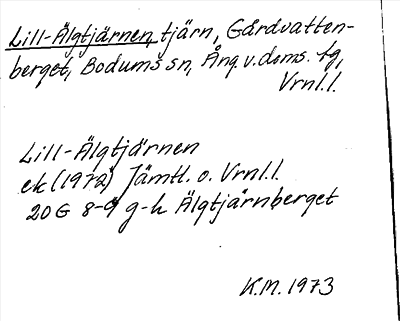 Lill-Älgtjärnen, tjärn, Gårdvatten-
berget, Bodums sn, Ång. v. doms. tg,
Vrnl.l.
Lill-Älgtjärnen
ek (1972) Jämtl. o. Vrnl.l.
20G 8-9 g-h Älgtjärnberget
K.M. 1973